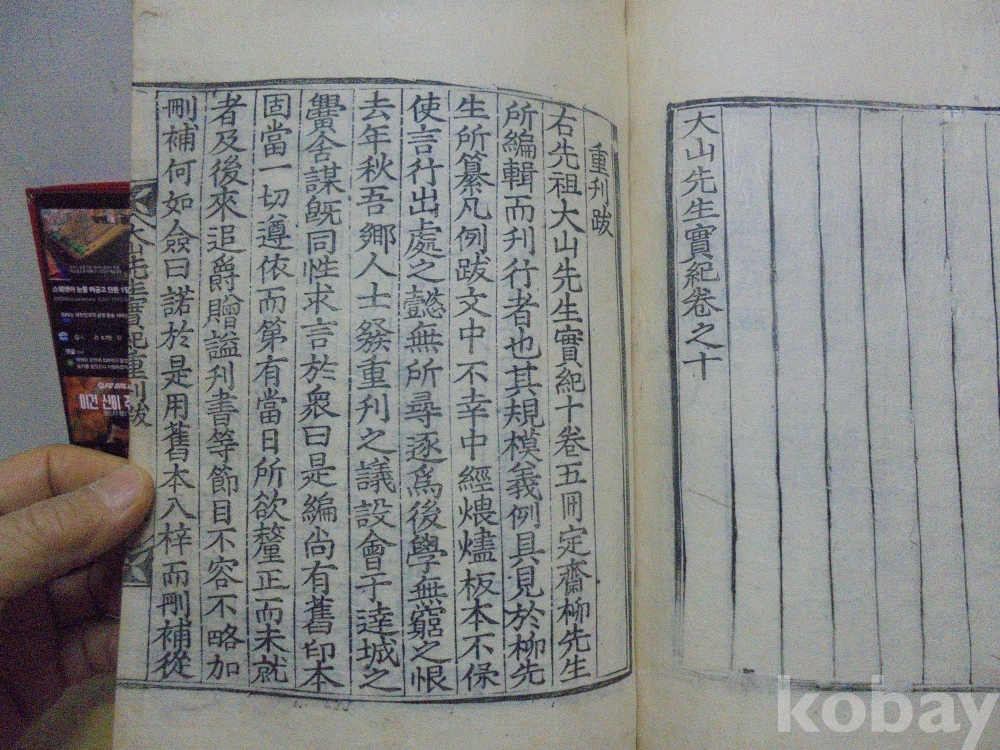 大山先生實紀卷之十
重刊跋
右先祖大山先生實紀十卷五冊定齋柳先生
所編輯而刊行者也其規模義例具見於柳先
生所纂凡例跋文中不幸中經煨燼板本不保
使言行出處之懿無所尋逐爲後學無窮之恨
去年秋吾鄉人士發重刊之議設會于達城之
黌舍謀旣同性求言於衆曰是編尚有舊印本
固當一切遵依而第有當日所欲釐正而未就
者及後來追爵贈謚刋書等節目不容不略加
刪補何如僉曰諾於是用舊本入梓而刪補從
大山先生實紀重刊跋
이건 신이
kobay